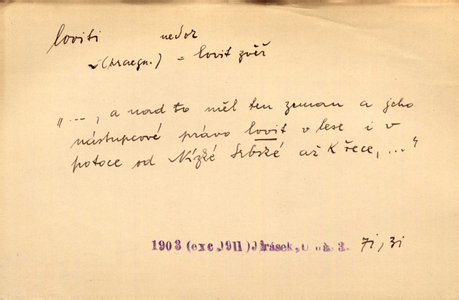 loviti nedok
(tr. a egn.) = lovit zvěř
„..., a nad to měl ten zeman a jeho
nástupcové právo lovit v lese i v
potoce od Nízké Srbské až k řece, ..."
1903 (exc. 1911) Jirásek, 3. 71, 31